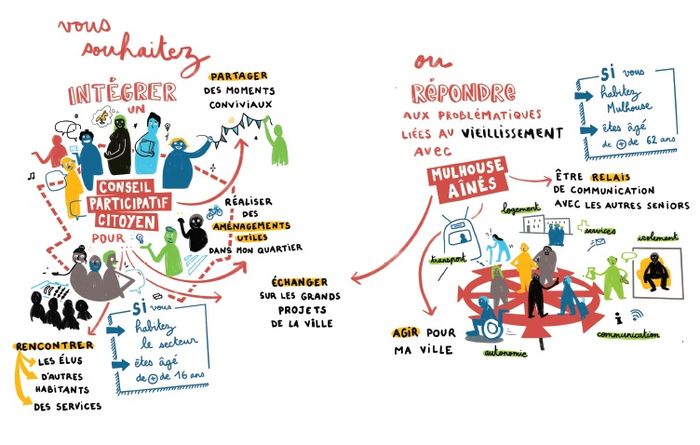 vous
souhaitez
INTÉGRER
UN
CONSEIL
PARTICIPATIF
CITOYEN
POUR
PARTAGER
DES MOMENTS
CONVIVIAUX
RÉALISER
DES
AMÉNAGEMENTS
UTILES
DANS MON QUARTIER
ÉCHANGER
SUR LES GRANDS
PROJETS
DE LA VILLE
RENCONTRER
LES ÉLUS
D'AUTRES
HABITANTS
DES SERVICES
SI vous
habitez
le secteur
êtes âgé
de + de 16 ans
ou
RÉPONDRE
AUX PROBLÉMATIQUES
LIÉES AU VIEILLISSEMENT
AVEC
MULHOUSE
AÎNÉS
SI vous
habitez
Mulhouse
êtes âgé
de + de 62 ans
ÊTRE RELAIS
DE COMMUNICATION
AVEC LES AUTRES SENIORS
logement
services
isolement
transport
communication
autonomie
AGIR POUR
MA VILLE